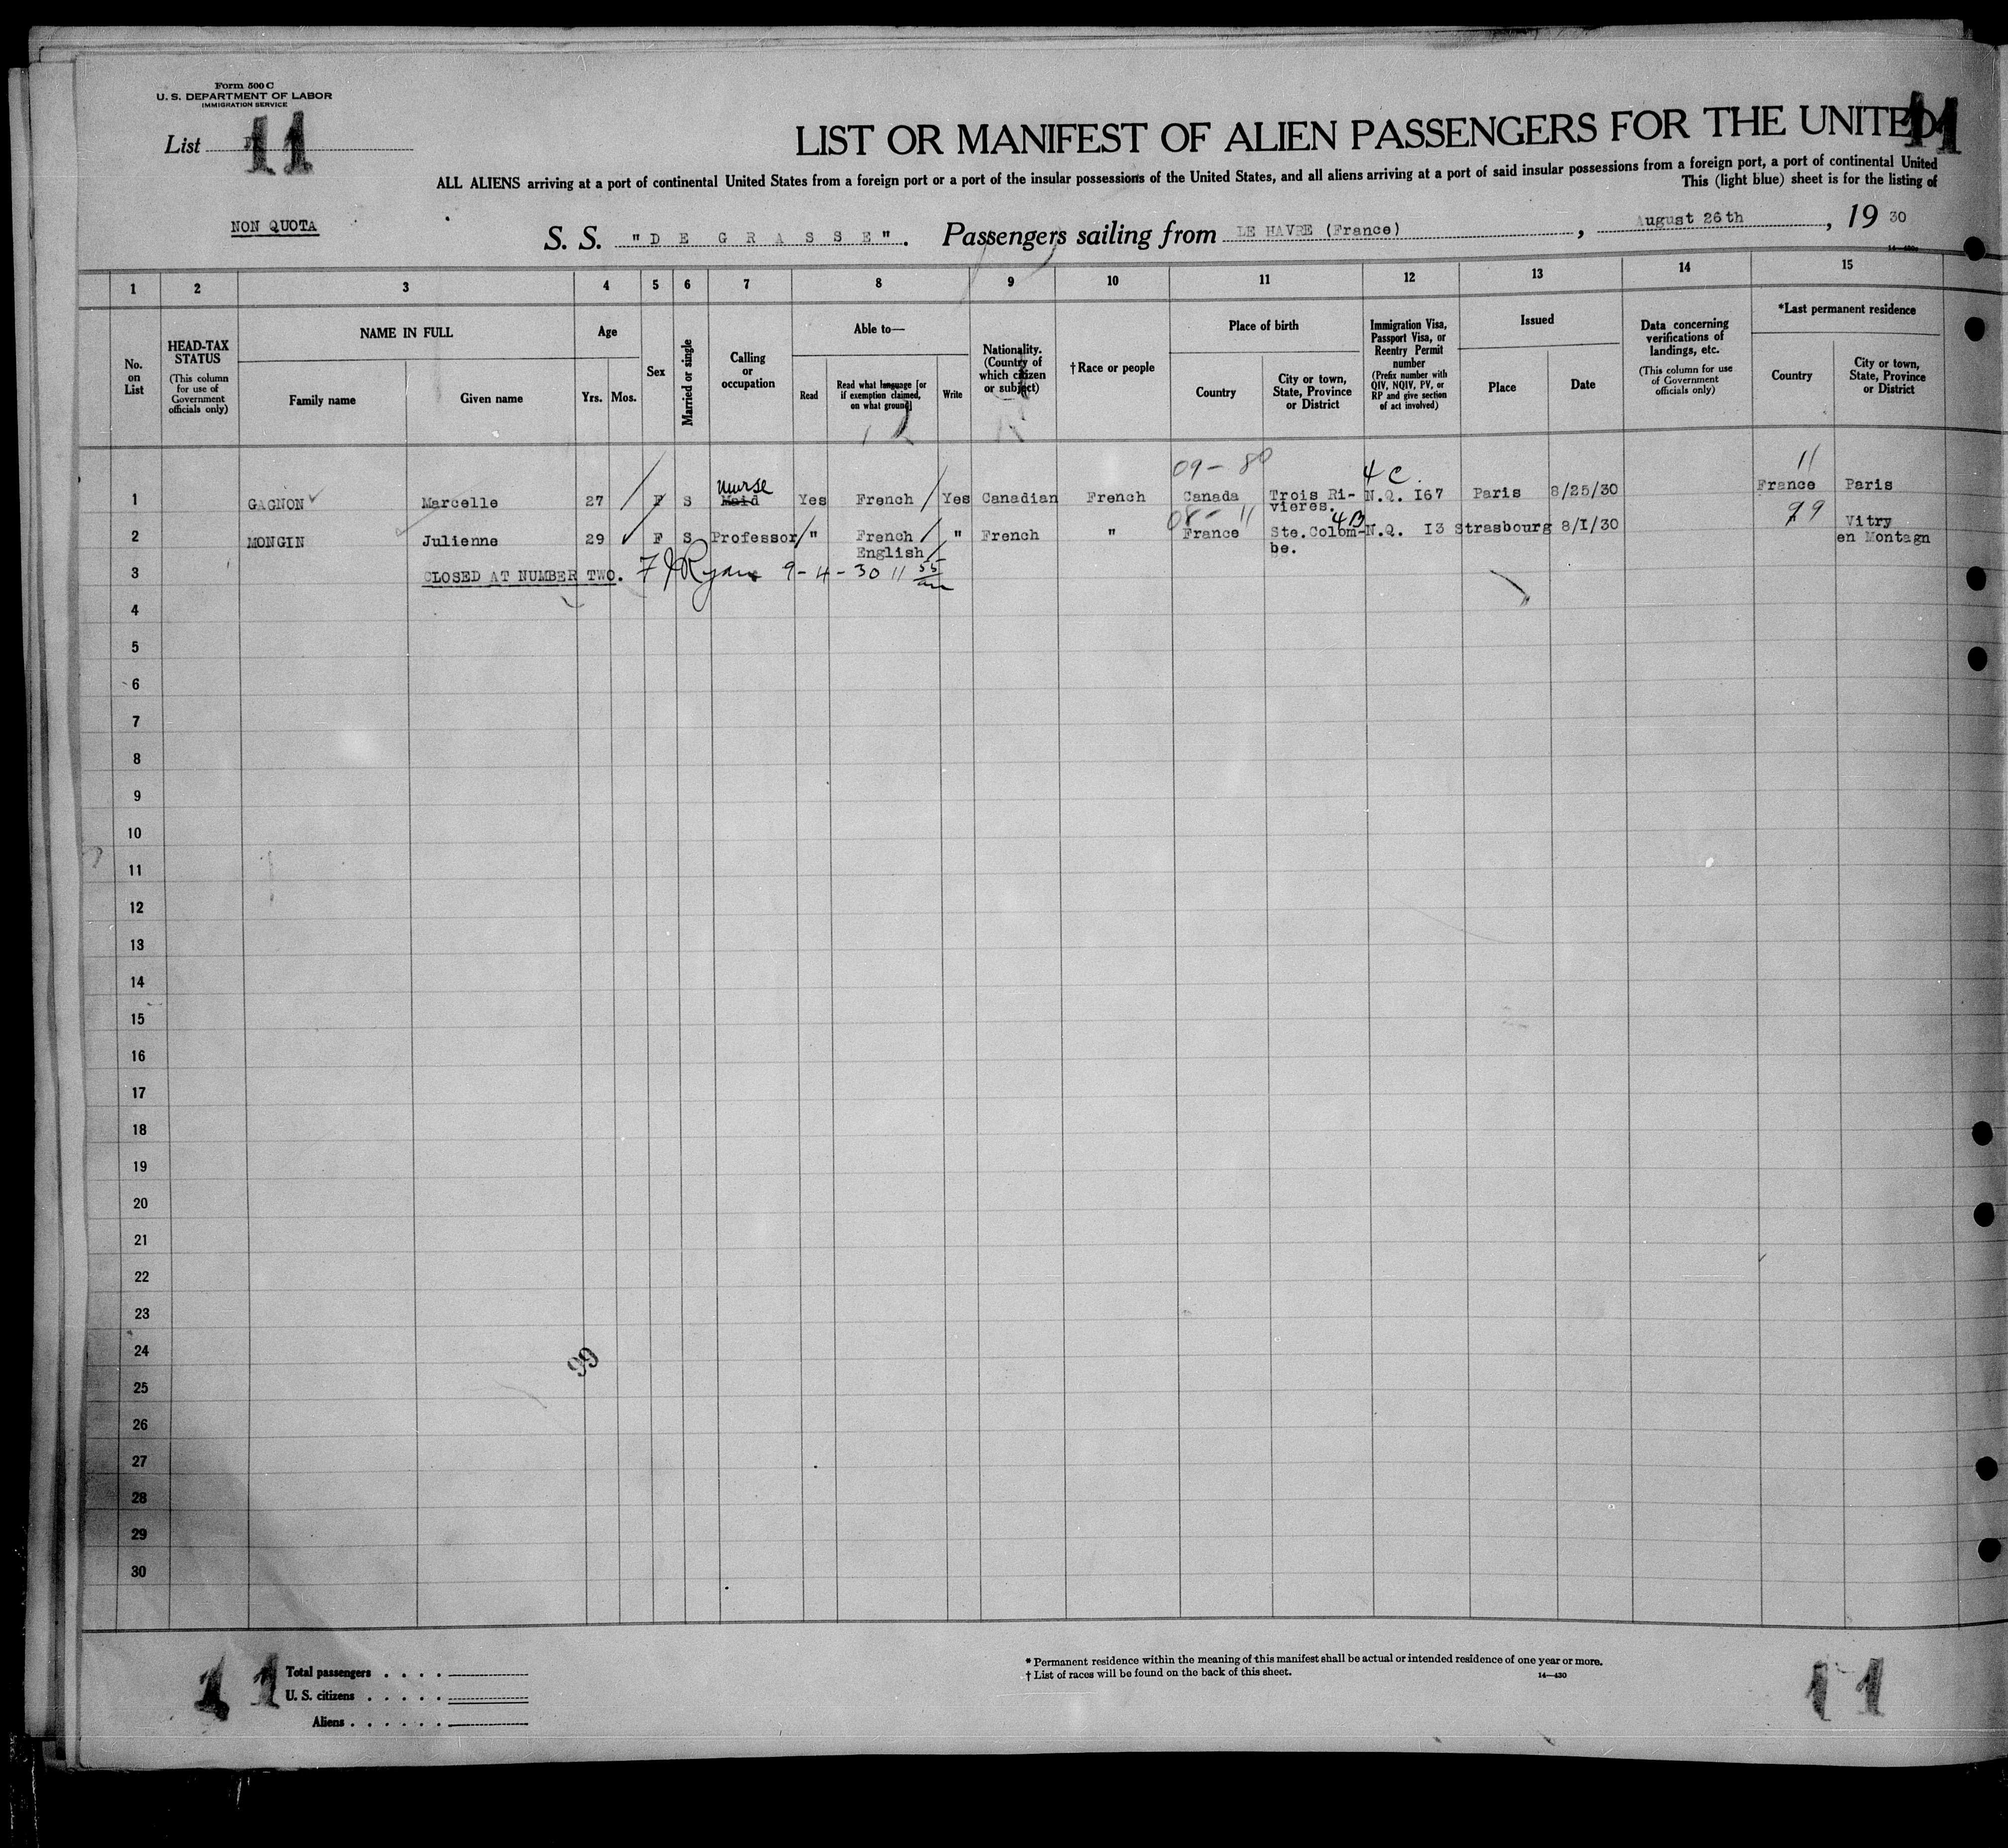 Form 500 C
U. S. DEPARTMENT OF LABOR
IMMIGRATION SERVICE
List 11
11
LIST OR MANIFEST OF ALIEN PASSENGERS FOR THE UNITED
ALL ALIENS arriving at a port of continental United States from a foreign port or a port of the insular possessions of the United States, and all aliens arriving at a port of said insular possessions from a foreign port, a port of continental United
This (light blue) sheet is for the listing of
NON QUOTA
S. S. "D E G R A S S E". Passengers sailing from LE HAVRE (France), August 26th, 19 30
1 2 3 4 5 6 7 8 9 10 11 12 13 14 15
No. on List
HEAD-TAX STATUS (This column for use of Government officials only)
NAME IN FULL
Family name
Given name
Age
Yrs. Mos.
Sex
Married or single
Calling or occupation
Able to—
Read
Read what language [or if exemption claimed, on what ground]
Write
Nationality. (Country of which citizen or subject)
†Race or people
Place of birth
Country
City or town, State, Province or District
Immigration Visa, Passport Visa, or Reentry Permit number (Prefix number with QIV, NQIV, PV, or RP and give section of act involved)
Issued
Place
Date
Data concerning verifications of landings, etc. (This column for use of Government officials only)
*Last permanent residence
Country
City or town, State, Province or District
09- 80 4 C. 11
Nurse
1 GAGNON Marcelle 27 F S Maid Yes French Yes Canadian French Canada Trois Ri-vieres. N.Q. I67 Paris 8/25/30 France Paris
08- 11 4B 99
2 MONGIN Julienne 29 F S Professor " French English " French " France Ste.Colom-be. N.Q. I3 Strasbourg 8/I/30 Vitry en Montagn
3 CLOSED AT NUMBER TWO. F J Ryan 9-4-30 11 55 am
4
5
6
7
8
9
10
11
12
13
14
15
16
17
18
19
20
21
22
23
24
99
25
26
27
28
29
30
11 Total passengers . . . .
U. S. citizens . . . . .
Aliens . . . . . .
* Permanent residence within the meaning of this manifest shall be actual or intended residence of one year or more.
† List of races will be found on the back of this sheet. 14—430
11